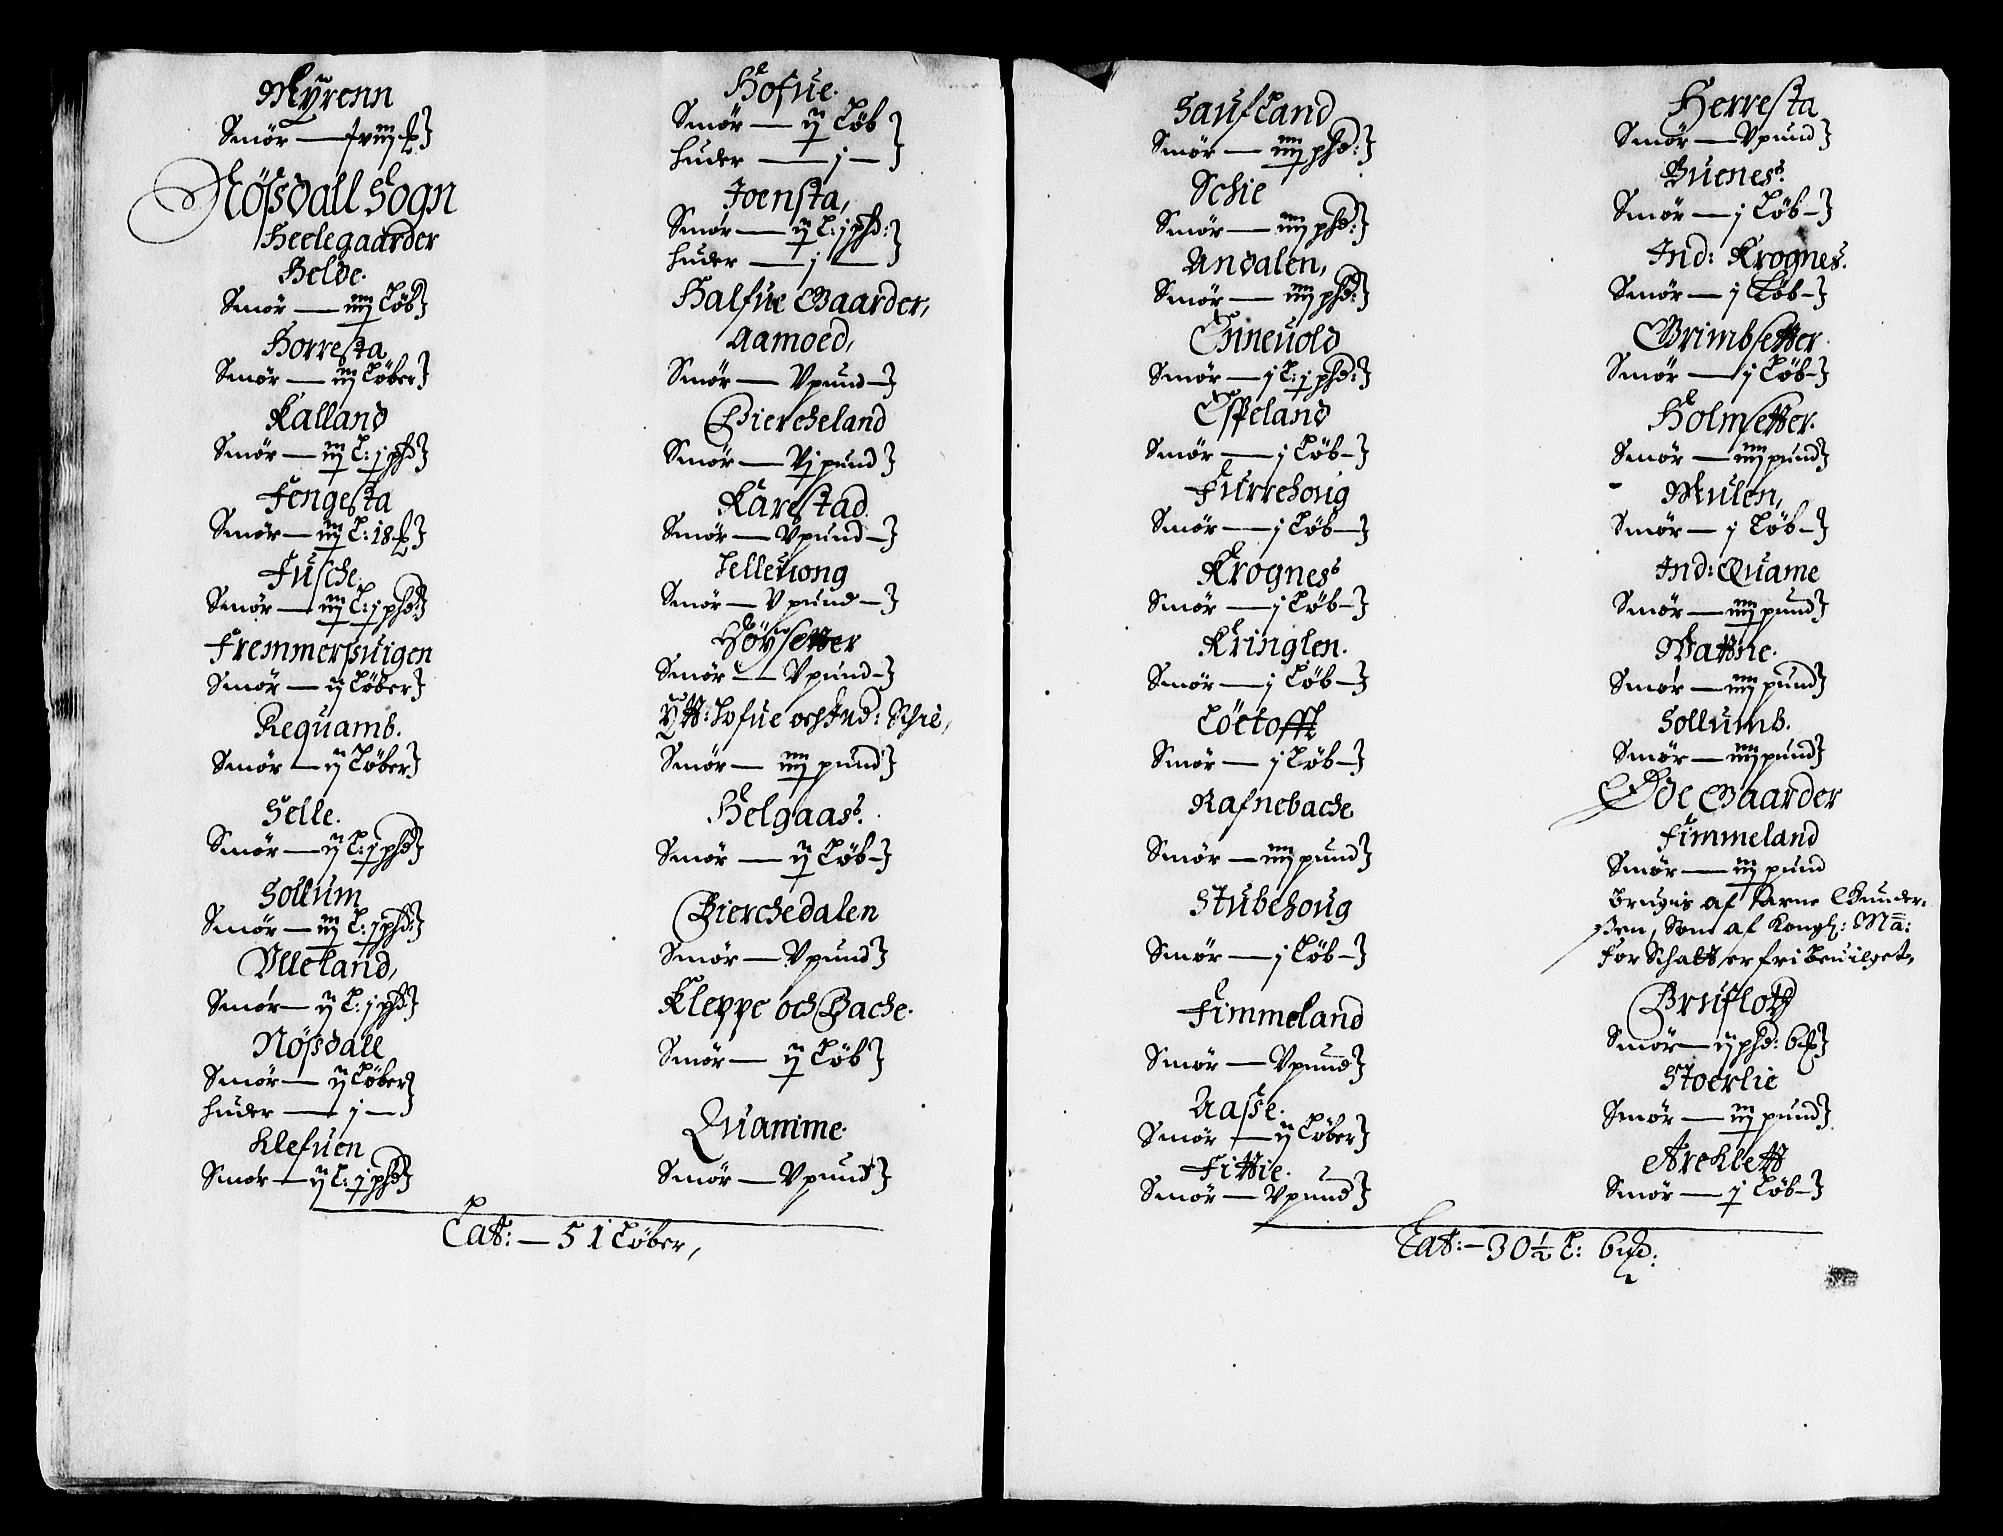 Myrenn
Smör — xviij
Nössdall Sogn
Heelegaarder
Helde.
Smör — iiij Löb
Horresta
Smör — iij Löber
Kalland
Smör — iij L: j phd
Fengesta
Smör — iij L: 18
Fusche.
Smör — iij L: j phd
Fremmersuigen
Smör — ij Löber
Requamb.
Smör — ij Löber
Selle.
Smör — ij L: j phd
Sollum
Smör — iij L: j phd:
Vlleland,
Smör — ij L: j phd
Nössdall
Smör — ij Löber
Huder — j —
Klefuen
Smör — ij L: j phd
Hofue.
Smör — ij Löb
Huder — j —
Joensta,
Smör — ij L: j phd:
Huder — j —
Halfue Gaarder,
Aamoed,
Smör — V pund —
Biercheland
Smör — Vj pund
Karestad
Smör — V pund —
Jelleuong
Smör — V pund —
Höysetter
Smör — V pund —
Ytt: Lofue och Ind: Schie,
Smör — iiij pund
Helgaass.
Smör — ij Löb —
Bierchedalen
Smör — V pund
Kleppe och Bache.
Smör — ij Löb
Quamme.
Smör — V pund
Lat: — 51 Löber,
Saufland
Smör — iiij phd:
Schie
Smör — iiij phd:
Andalen,
Smör — iiij phd:
Önneuold
Smör — j L: j phd:
Espeland
Smör — j Löb —
Furrehoug
Smör — j Löb —
Krogness
Smör — j Löb —
Kringlen.
Smör — j Löb —
Löetofft
Smör — j Löb —
Rafnebache
Smör — iiij pund
Stubehoug
Smör — j Löb —
Fimmeland
Smör — V pund
Aasse.
Smör — ij Löber
Fittie.
Smör — V pund
Herresta
Smör — V pund
Buenes.
Smör — j Löb —
Ind: Krognes.
Smör — j Löb —
Grimbsetter
Smör — j Löb —
Holmsetter.
Smör — iiij pund
Mulen,
Smör — j Löb —
Ind: Quame
Smör — iiij pund
Wattne.
Smör — iiij pund
Sollumb.
Smör — iiij pund
Öde Gaarder
Fimmeland
Smör — iij pund
Brugis af Tarne Gunder-
sen, Som af Kongl: Ma:
For Schatt er fri beuilget,
Brufloth
Smör — ij phd: 6
Stoerlie
Smör — iij pund
Areklett
Smör — j Löb —
Lat: — 30 ½ L: 6